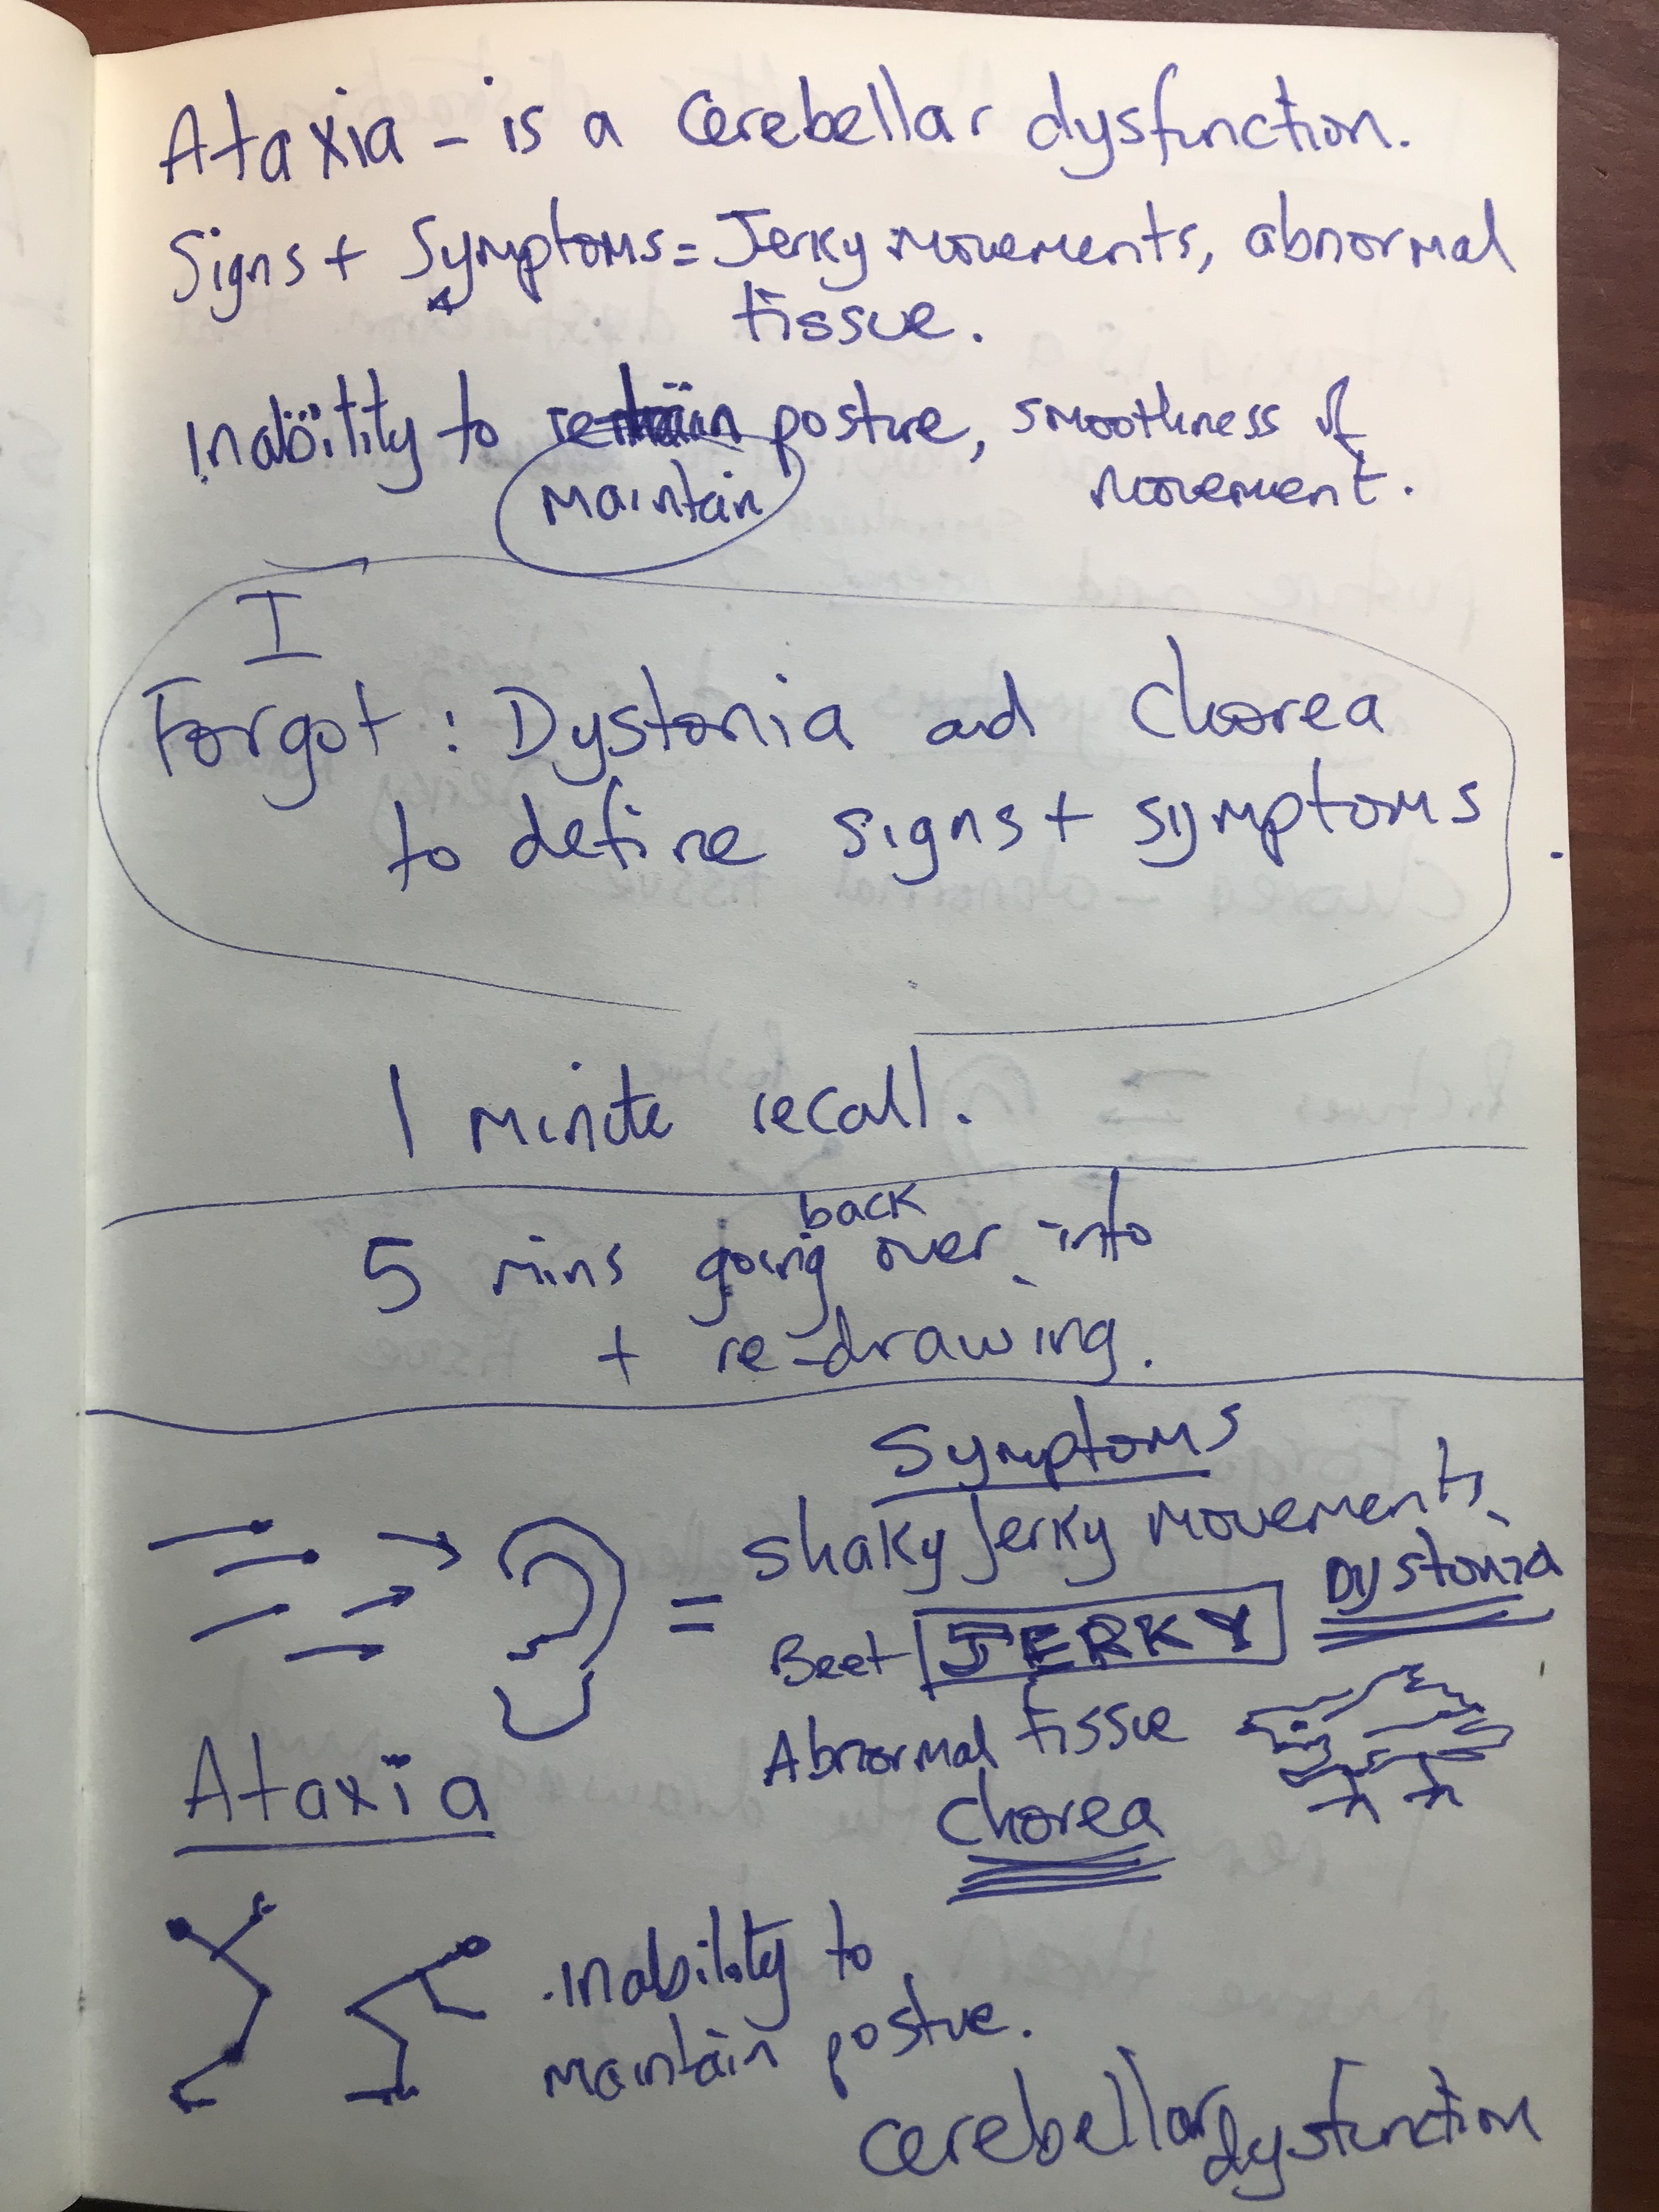 Ataxia - is a cerebellar dysfunction.
Signs + Symptoms = Jerky movements, abnormal
tissue.
Inability to retain posture, smoothness of
maintain
movement.
I
Forgot : Dystonia and Chorea
to define signs + symptoms
1 minute recall.
back
5 mins going over into
+ re-drawing.
Symptoms
shaky Jerky movements
Dystonia
Beef JERKY
Abnormal tissue
Chorea
Ataxia
inability to
maintain posture.
cerebellar dysfunction